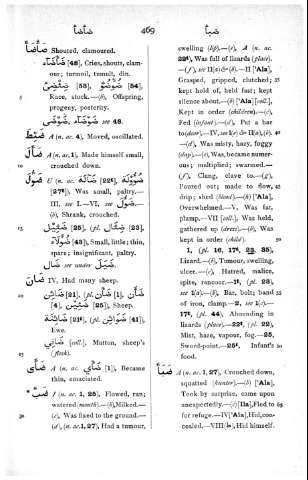 ضأضأ 469 ضبأ
ضَأْضَأَ Shouted, clamoured.
ضَأْضَاء [48], Cries, shouts, clamour; turmoil, tumult, din.
ضِئْضِئ [53], ضُؤْضُؤ [54],
Race, stock.—(b), Offspring,
progeny, posterity.
see 48.
A (n. ac. 4), Moved, oscillated.
ضَأَلَ A (n. ac. 1), Made himself small,
crouched down.
ضَؤُلَ U (n. ac. ضَآلَة [22t], ضُؤُولَة
[27t]), Was small, paltry.—
III, see I.—VI, see ضَؤُلَ.—
(b), Shrank, crouched.
ضَئِيْل [25], (pl. ضِئَال [23],
ضُؤَلَاء [43]), Small, little; thin,
spare; insignificant, paltry.
ضَال see under
ضَأَنَ IV, Had many sheep.
ضَائِن [21], (pl. ضَأْن [1], ضَأَن
[4], ضَئِيْن [25]), Sheep.
ضَائِنَة [21t], (pl. ضَوَائِن [41]),
Ewe.
ضَانِي [coll.], Mutton, sheep's
(flesh).
A (n. ac. [1]), Became
thin, emaciated.
ضَبَّ I (n. ac. 1, 25), Flowed, ran;
watered (mouth).—(b), Milked.—
(c), Was fixed to the ground.—
(d), (n. ac. 1, 27), Had a tumour,
swelling (lip).—(e), A (n. ac.
22t), Was full of lizards (place).
Grasped, gripped, clutched;
kept hold of, held fast; kept
silence about.—(b) ['Ala] [coll.],
Kept in order (children).—(c),
Fed (infant).—(d), Put a bar
to (door).—IV, see I(e)
—(d), Was misty, hazy, foggy
(day).—(e), Was, became numerous; multiplied; swarmed.—
(f), Clung, clave to.—(g),
Poured out; made to flow,
drip; shed (blood).—(h) ['Ala],
Overwhelmed.—V, Was fat,
plump.—VII [coll.], Was held,
gathered up (dress).—(b), Was
kept in order (child).
Lizard.—(b), Tumour, swelling,
ulcer.—(c), Hatred, malice,
spite, rancour.—1t, (pl. 23),
see 1(a).—(b), Bar, bolt; band
of iron, clamp.—2, see 1(c).—
17t, (pl. 44), Abounding in
lizards (place).—22t, (pl. 22),
Mist, haze, vapour, fog.—25,
Sword-point.—25t, Infant's
food.
ضَبَأَ A (n. ac. 1, 27), Crouched down,
squatted (hunter).—(b) ['Ala],
Took by surprise, came upon
unexpectedly.—(c) [Ila], Fled to
for refuge.—IV ['Ala], Hid, concealed.—VIII (ia), Hid himself.